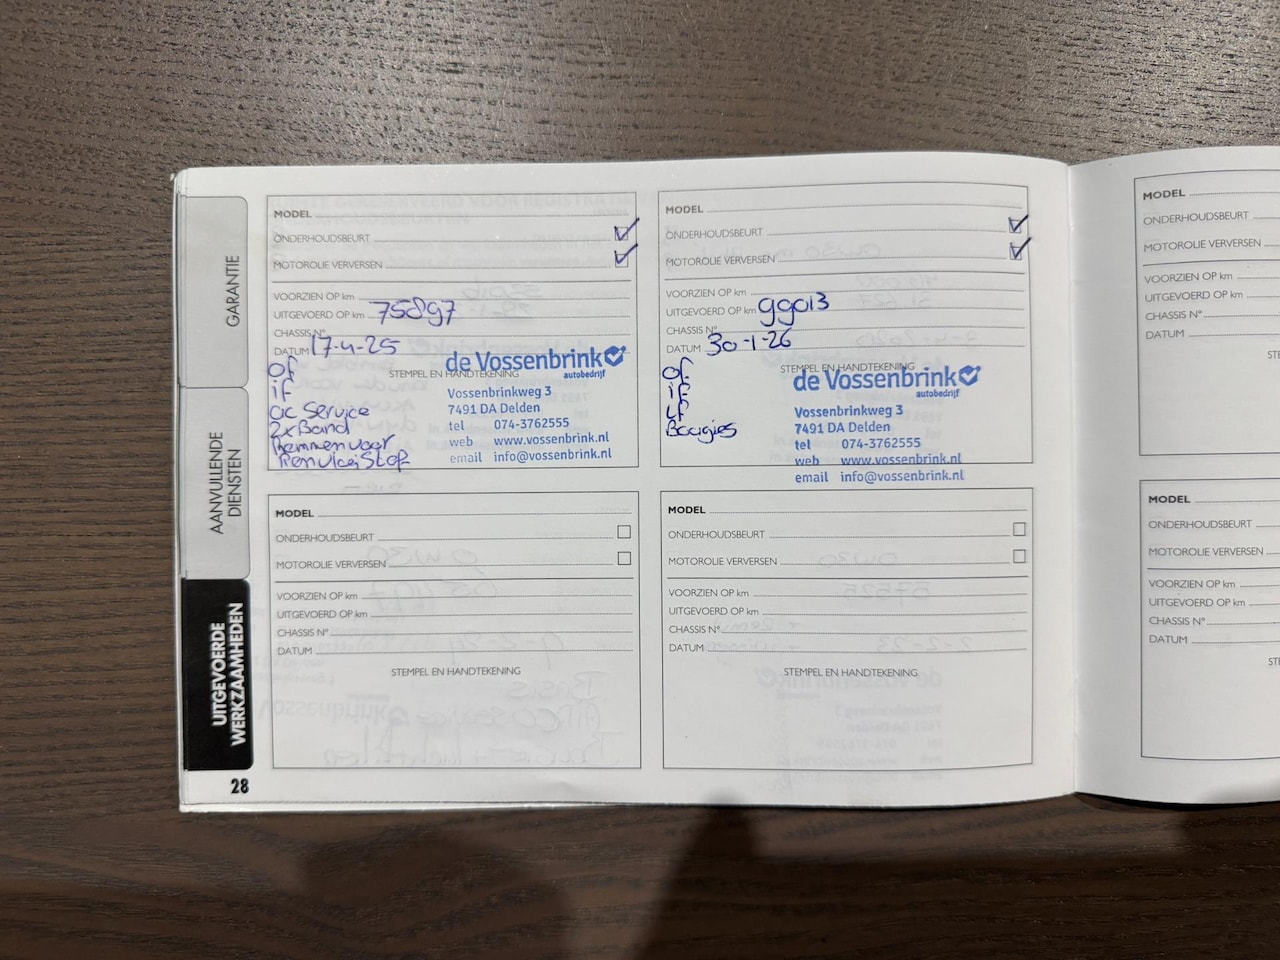 GARANTIE
AANVULLENDE
DIENSTEN
UITGEVOERDE
WERKZAAMHEDEN
28
MODEL
ONDERHOUDSBEURT
MOTOROLIE VERVERSEN
VOORZIEN OP km
UITGEVOERD OP km 75897
CHASSIS N°
DATUM 17-4-25
STEMPEL EN HANDTEKENING
of
if
ac Service
2x Band
Remmen voor
de Vossenbrink
autobedrijf
Vossenbrinkweg 3
7491 DA Delden
tel 074-3762555
web www.vossenbrink.nl
email info@vossenbrink.nl
MODEL
ONDERHOUDSBEURT
MOTOROLIE VERVERSEN
VOORZIEN OP km
UITGEVOERD OP km 99013
CHASSIS N°
DATUM 30-1-26
STEMPEL EN HANDTEKENING
of
if
lf
Bougies
de Vossenbrink
autobedrijf
Vossenbrinkweg 3
7491 DA Delden
tel 074-3762555
web www.vossenbrink.nl
email info@vossenbrink.nl
MODEL
ONDERHOUDSBEURT
MOTOROLIE VERVERSEN
VOORZIEN OP km
UITGEVOERD OP km
CHASSIS N°
DATUM
STEMPEL EN HANDTEKENING
MODEL
ONDERHOUDSBEURT
MOTOROLIE VERVERSEN
VOORZIEN OP km
UITGEVOERD OP km
CHASSIS N°
DATUM
STEMPEL EN HANDTEKENING
MODEL
ONDERHOUDSBEURT
MOTOROLIE VERVERSEN
VOORZIEN OP km
UITGEVOERD OP km
CHASSIS N°
DATUM
MODEL
ONDERHOUDSBEURT
MOTOROLIE VERVERSEN
VOORZIEN OP km
UITGEVOERD OP km
CHASSIS N°
DATUM